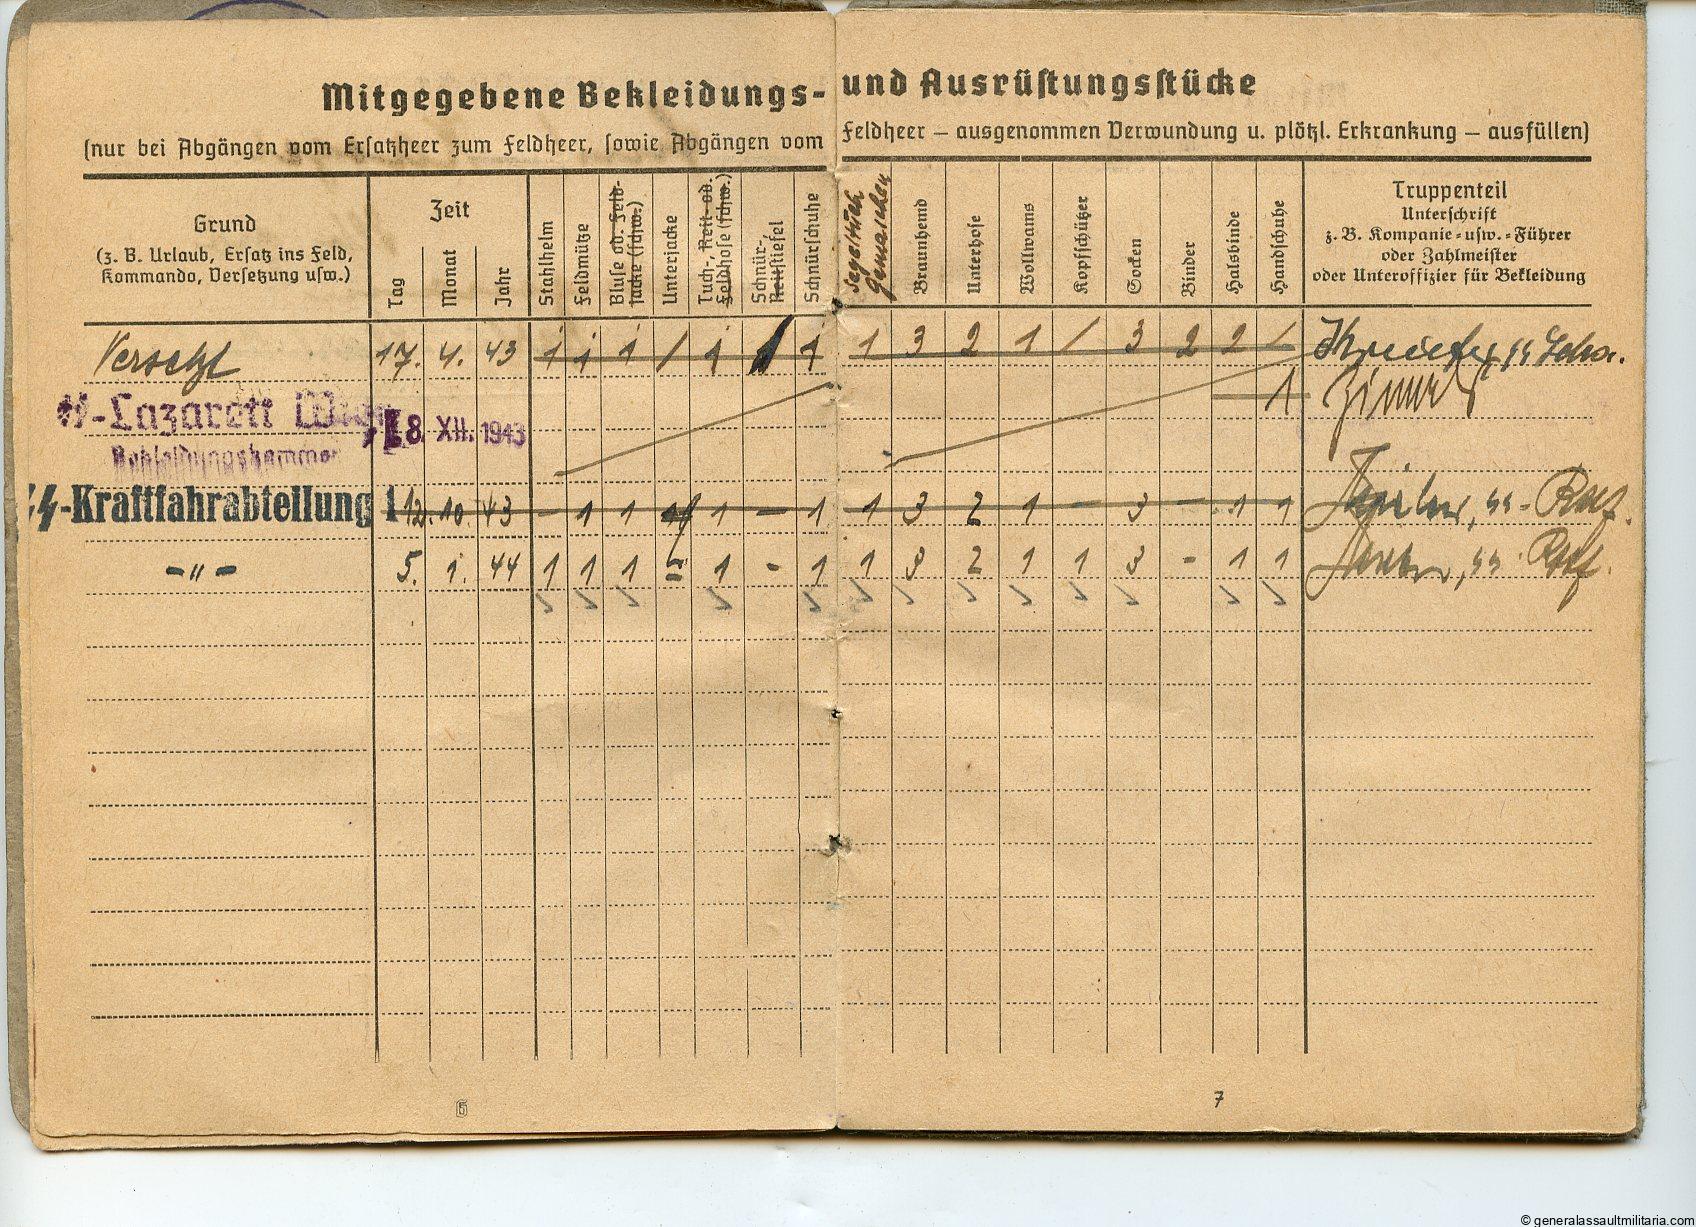 Mitgegebene Bekleidungs- und Ausrüstungsstücke
(nur bei Abgängen vom Ersatzheer zum Feldheer, sowie Abgängen vom Feldheer – ausgenommen Verwundung u. plötzl. Erkrankung – ausfüllen)
Grund
(z. B. Urlaub, Ersatz ins Feld,
Kommando, Versetzung usw.)
Zeit
Tag
Monat
Jahr
Stahlhelm
Feldmütze
Bluse od. Feld-
jacke (schw.)
Unterjacke
Tuch-, Reit- od.
Feldhose (schw.)
Schnür-
Reitstiefel
Schnürschuhe
Gamaschen
Braunhemd
Unterhose
Wollwams
Kopfschützer
Socken
Binder
Halsbinde
Handschuhe
Truppenteil
Unterschrift
z. B. Kompanie- usw. -Führer
oder Zahlmeister
oder Unteroffizier für Bekleidung
Versetzt 17. 4. 43 1 1 1 / 1 1 1 3 2 1 / 3 2 2 /
SS-Lazarett Wien 8. XII. 1943 1
Bekleidungskammer
SS-Kraftfahrabteilung 1 12. 10. 43 - 1 1 1 - 1 1 3 2 1 - 3 - 1 1
-"- 5. 1. 44 1 1 1 - 1 - 1 1 3 2 1 1 3 - 1 1
6
7
© generalassaultmilitaria.com